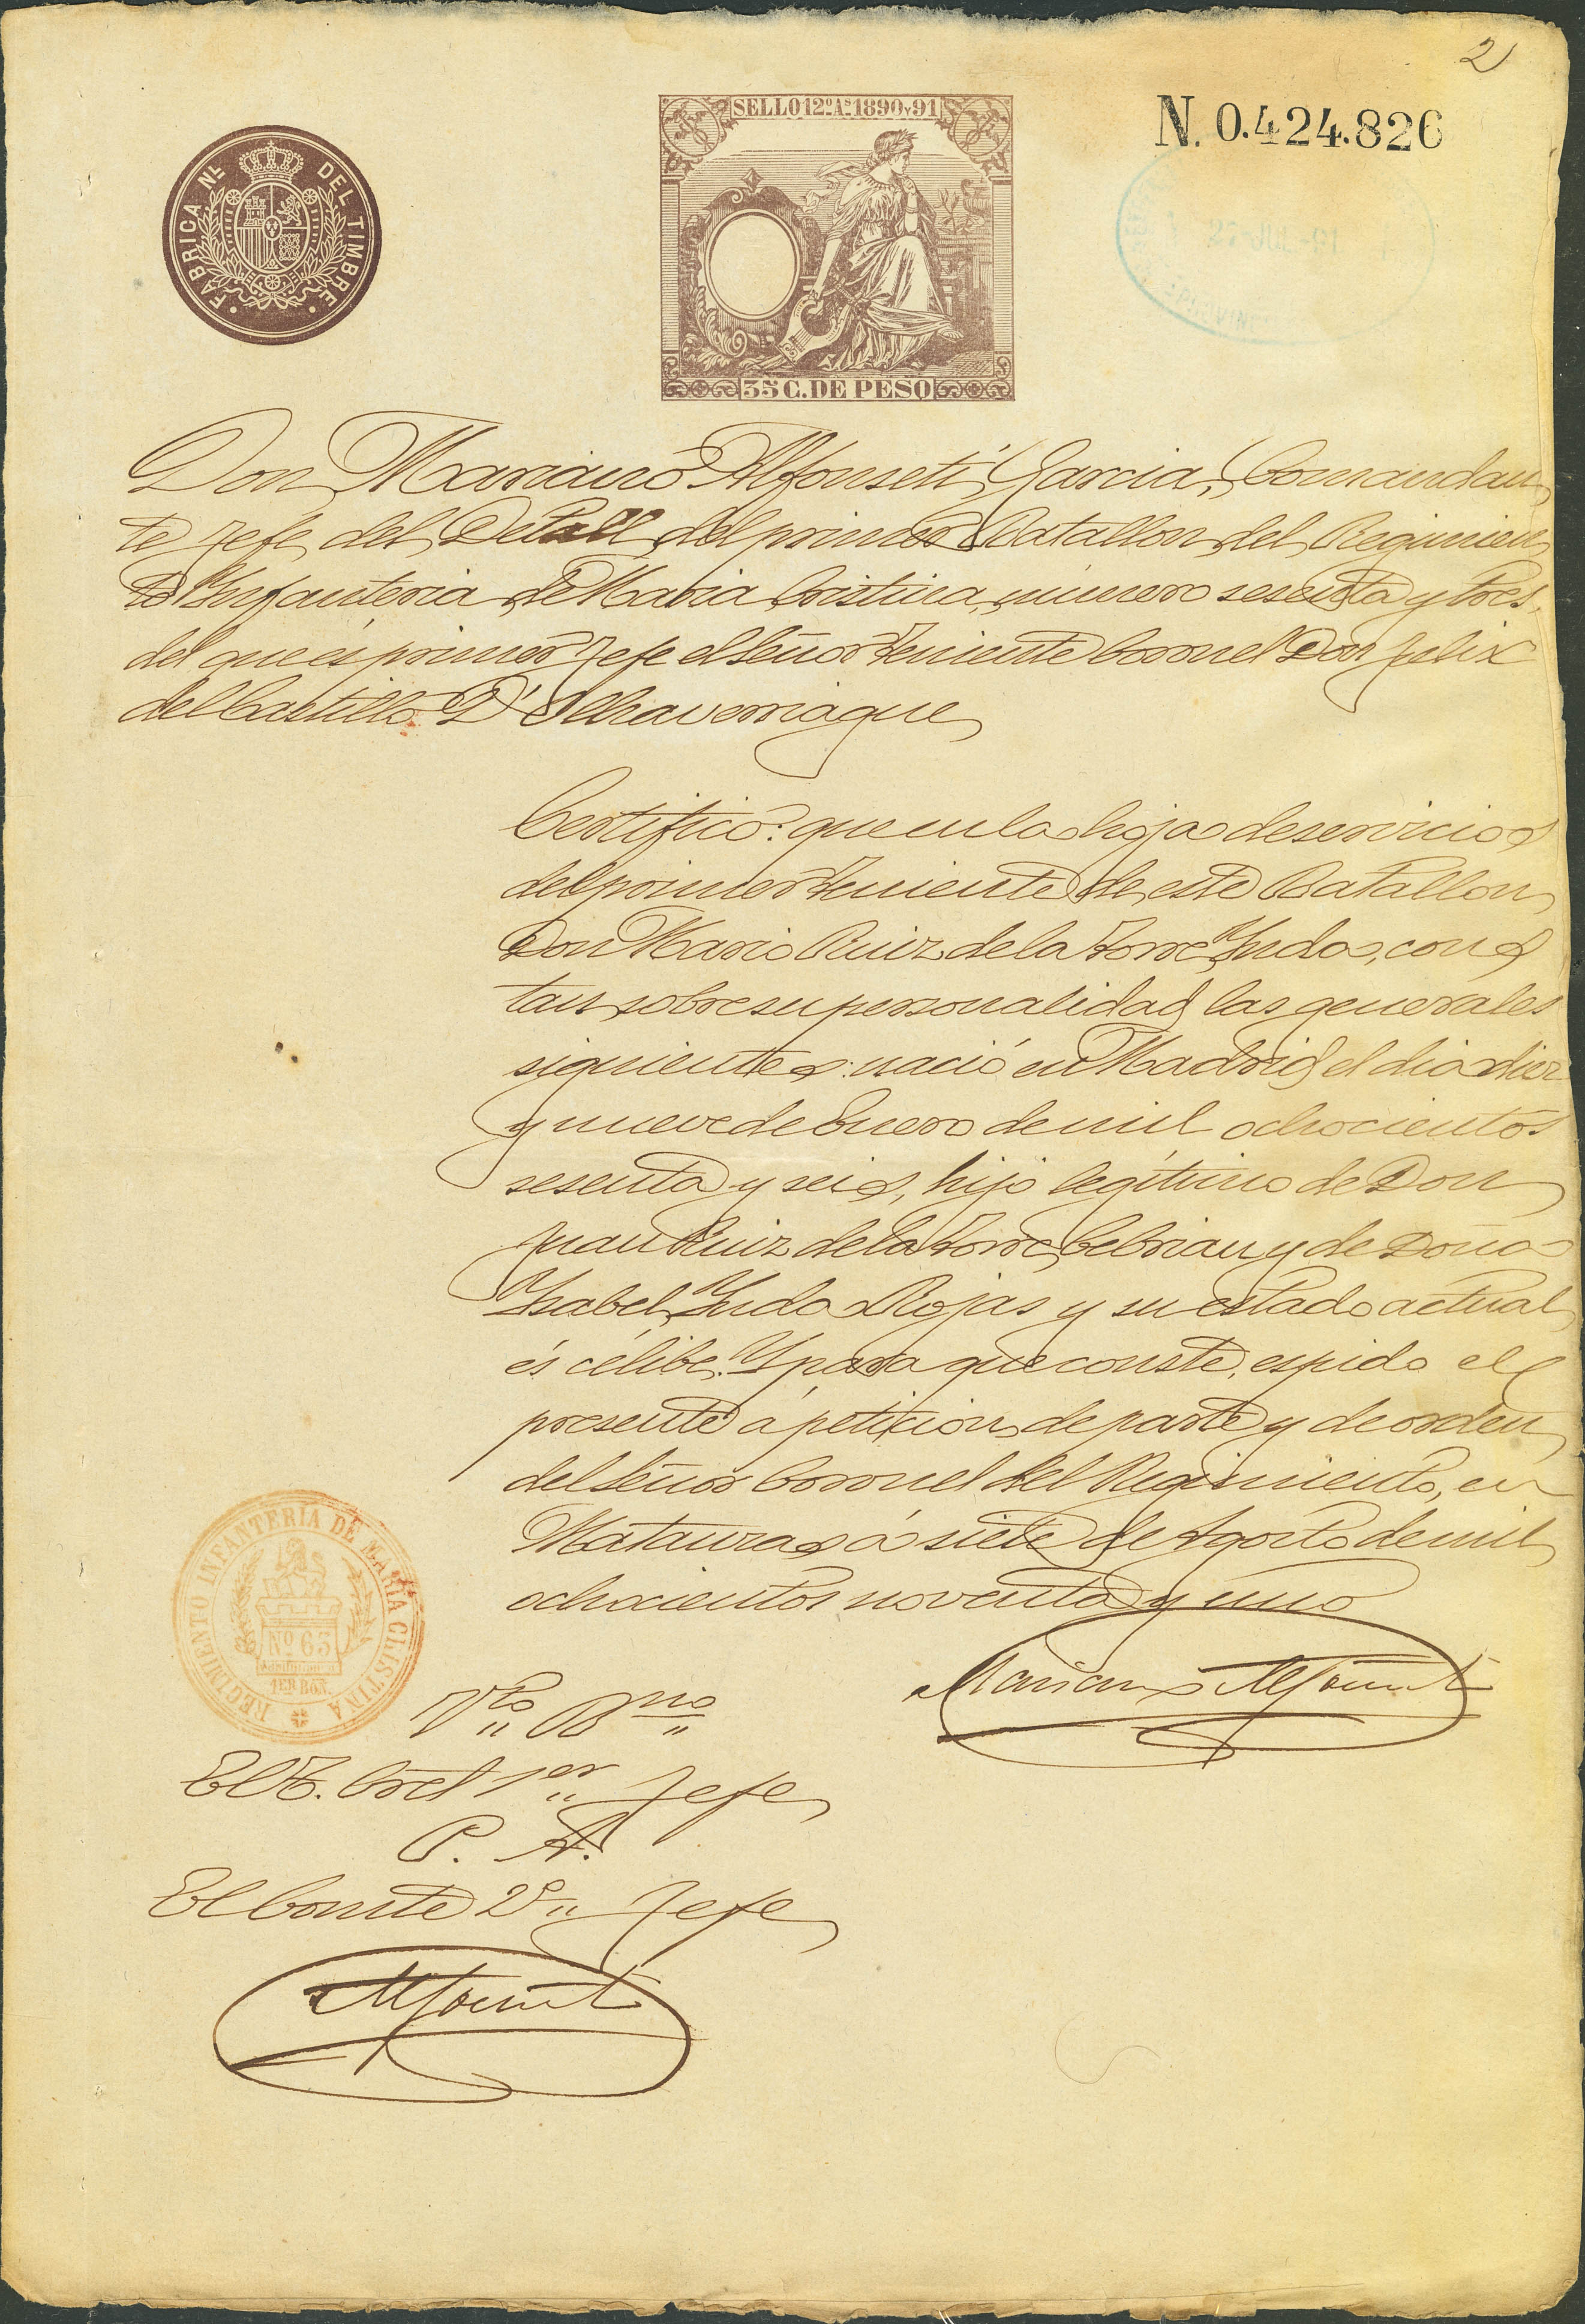 2
SELLO 12º As 1890 y 91
N. 0.424.826
FABRICA NL. DEL TIMBRE
27-JUL-91
35 C. DE PESO
Don Mariano Alfonseti Garcia, Comandan
te Jefe del Detall del primer Batallon del Regimien
to Infanteria de Maria Cristina, número sesenta y tres,
del que és primer Jefe el Señor Teniente Coronel Don Felix
del Castillo D'
Certifico: que en la hoja de servicios
del primer Teniente de este Batallon
Don Mario Ruiz de la Torre Yudo, cons
tan sobre su personalidad las generales
siguientes: nació en Madrid el dia diez
y nueve de Enero de mil ochocientos
sesenta y seis, hijo legítimo de Don
Juan Ruiz de la Torre Cebrian y de Doña
Ysabel Yudo Rojas y su estado actual
és célibe. Y para que conste, espido el
presente á peticion de parte y de orden
del Señor Coronel del Regimiento, en
Matanzas á siete de Agosto de mil
ochocientos noventa y uno
Mariano Alfonseti
REGIMIENTO INFANTERIA DE MARIA CRISTINA
Nº 63
1ER BON.
Vto Bno
El T. Crel 1er Jefe
P. A.
El Comte 2º Jefe
Alfonseti